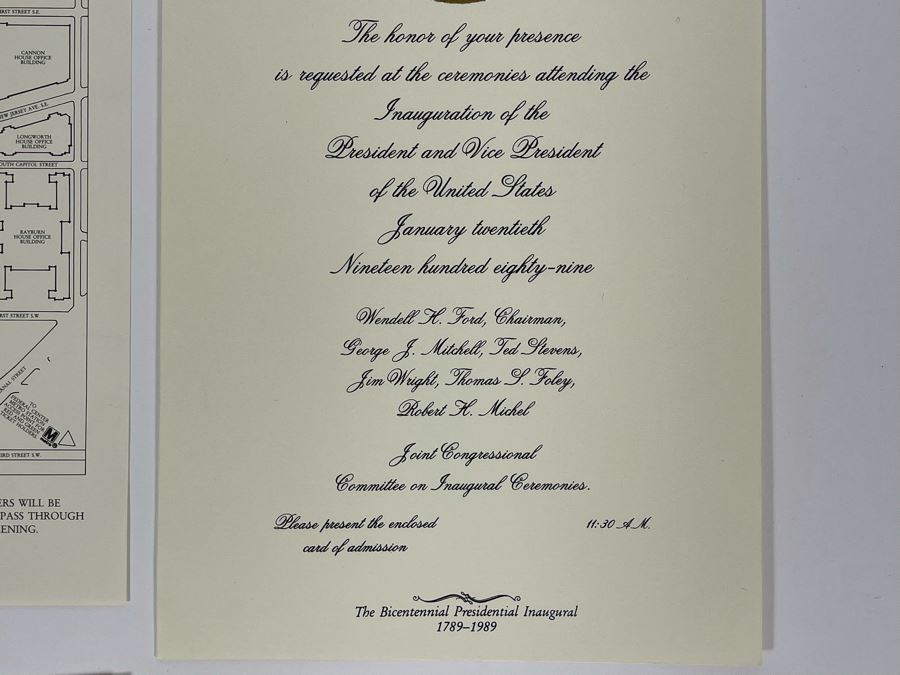 IRST STREET S.E.
CANNON
HOUSE OFFICE
BUILDING
NEW JERSEY AVE. S.E.
LONGWORTH
HOUSE OFFICE
BUILDING
OUTH CAPITOL STREET
RAYBURN
HOUSE OFFICE
BUILDING
RST STREET S.W.
CANAL STREET
TO
FEDERAL CENTER
METRO STATION
ACCESS POINT FOR
RED AND GREEN
TICKET HOLDERS.
M
IRD STREET S.W.
ERS WILL BE
PASS THROUGH
ENING.
The honor of your presence
is requested at the ceremonies attending the
Inauguration of the
President and Vice President
of the United States
January twentieth
Nineteen hundred eighty-nine
Wendell H. Ford, Chairman,
George J. Mitchell, Ted Stevens,
Jim Wright, Thomas S. Foley,
Robert H. Michel
Joint Congressional
Committee on Inaugural Ceremonies.
Please present the enclosed
card of admission
11:30 A.M.
The Bicentennial Presidential Inaugural
1789–1989